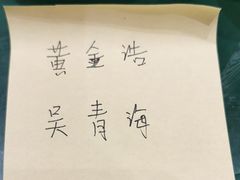 黄金浩
吴青海